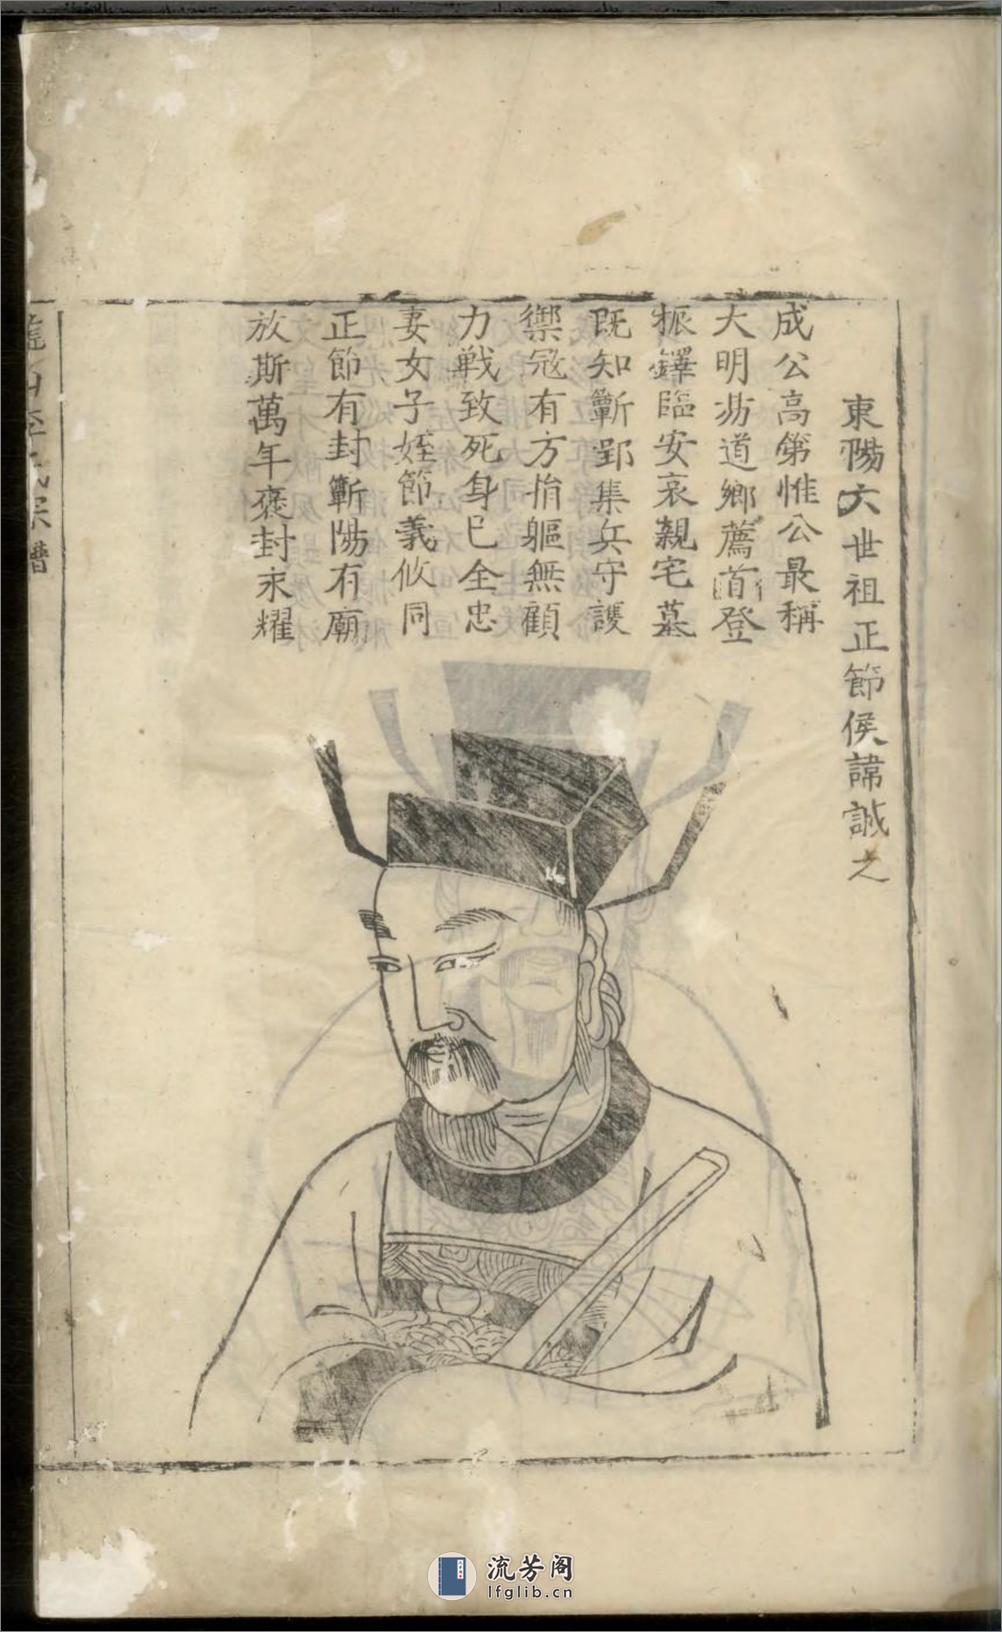 東陽六世祖正節侯諱誠之
成公高第惟公最稱
大明斯道鄉薦首登
振鐸臨安哀親宅墓
既知蘄郢集兵守護
禦冦有方捐軀無顧
力戰致死身已全忠
妻女子姪節義攸同
正節有封蘄陽有廟
放斯萬年褒封永耀
宗譜
流芳阁
lfglib.cn